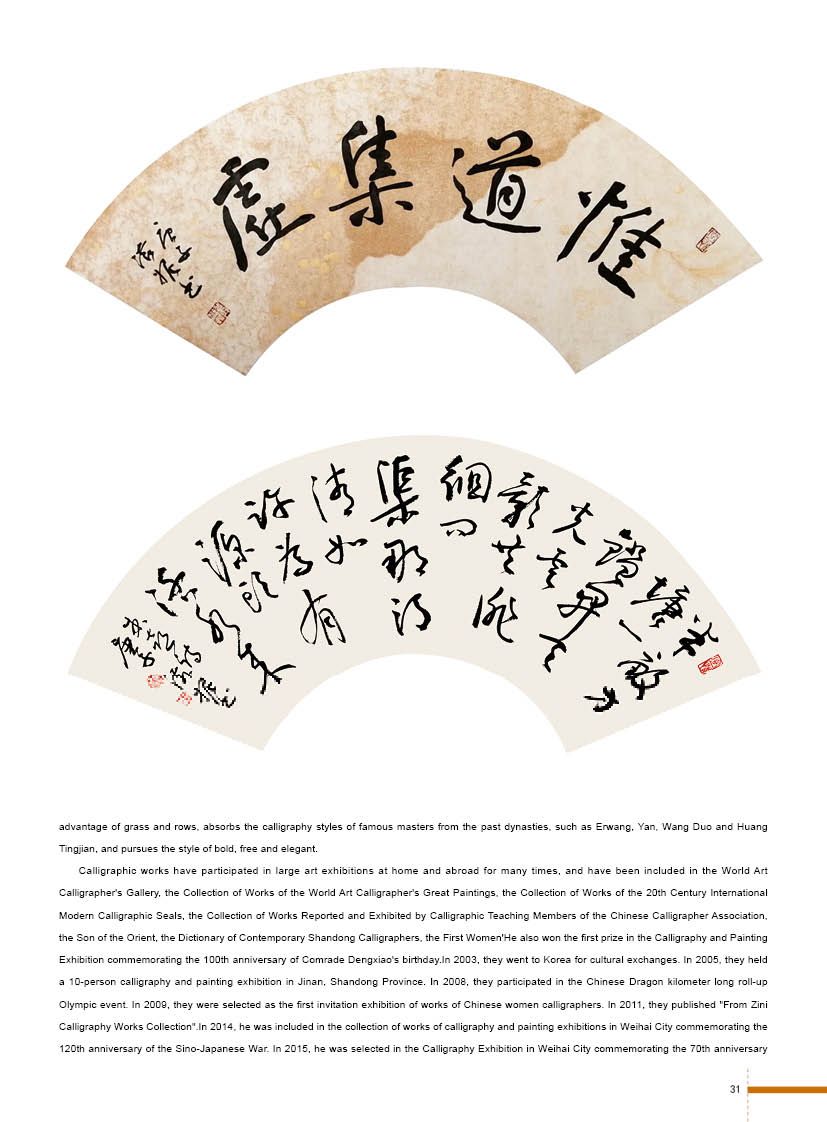 惟道集虛
庚子
半畝方
塘一
鑑開天
光雲
影共徘
徊问
渠那得
清如
許為有
源頭
活水來
advantage of grass and rows, absorbs the calligraphy styles of famous masters from the past dynasties, such as Erwang, Yan, Wang Duo and Huang
Tingjian, and pursues the style of bold, free and elegant.
Calligraphic works have participated in large art exhibitions at home and abroad for many times, and have been included in the World Art
Calligrapher's Gallery, the Collection of Works of the World Art Calligrapher's Great Paintings, the Collection of Works of the 20th Century International
Modern Calligraphic Seals, the Collection of Works Reported and Exhibited by Calligraphic Teaching Members of the Chinese Calligrapher Association,
the Son of the Orient, the Dictionary of Contemporary Shandong Calligraphers, the First Women'He also won the first prize in the Calligraphy and Painting
Exhibition commemorating the 100th anniversary of Comrade Dengxiao's birthday.In 2003, they went to Korea for cultural exchanges. In 2005, they held
a 10-person calligraphy and painting exhibition in Jinan, Shandong Province. In 2008, they participated in the Chinese Dragon kilometer long roll-up
Olympic event. In 2009, they were selected as the first invitation exhibition of works of Chinese women calligraphers. In 2011, they published "From Zini
Calligraphy Works Collection".In 2014, he was included in the collection of works of calligraphy and painting exhibitions in Weihai City commemorating the
120th anniversary of the Sino-Japanese War. In 2015, he was selected in the Calligraphy Exhibition in Weihai City commemorating the 70th anniversary
31